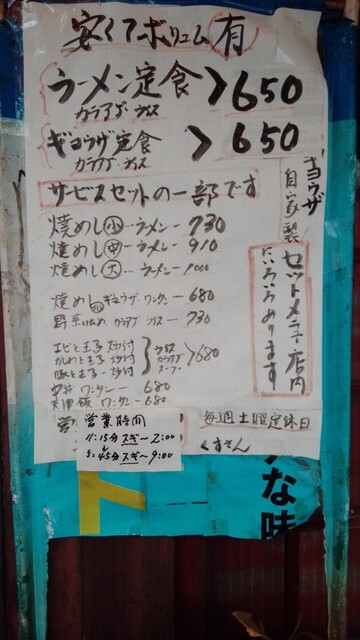 安くてボリュム有
ラーメン定食 > 650
カラアゲ ライス
ギョウザ定食 > 650
カラアゲ ライス
サービスセットの一部です
焼めし小…ラーメン－730
焼めし中－ラーメン－910
焼めし大…ラーメン－1000
焼めし小ギョウザ ワンタン－680
野菜いため カラアゲ ライス－730
エビと玉子
かしわと玉子
豚と玉子
ライス カラアゲ スープ > 680
ワンタン－ 680
天津飯 ワンタン－ 680
ギョウザ自家製
セットメニュー店内にいろいろあります
毎週土曜定休日
くすさん
営業時間
11:15分スギ～2:00
5:45分スギ～9:00
な味